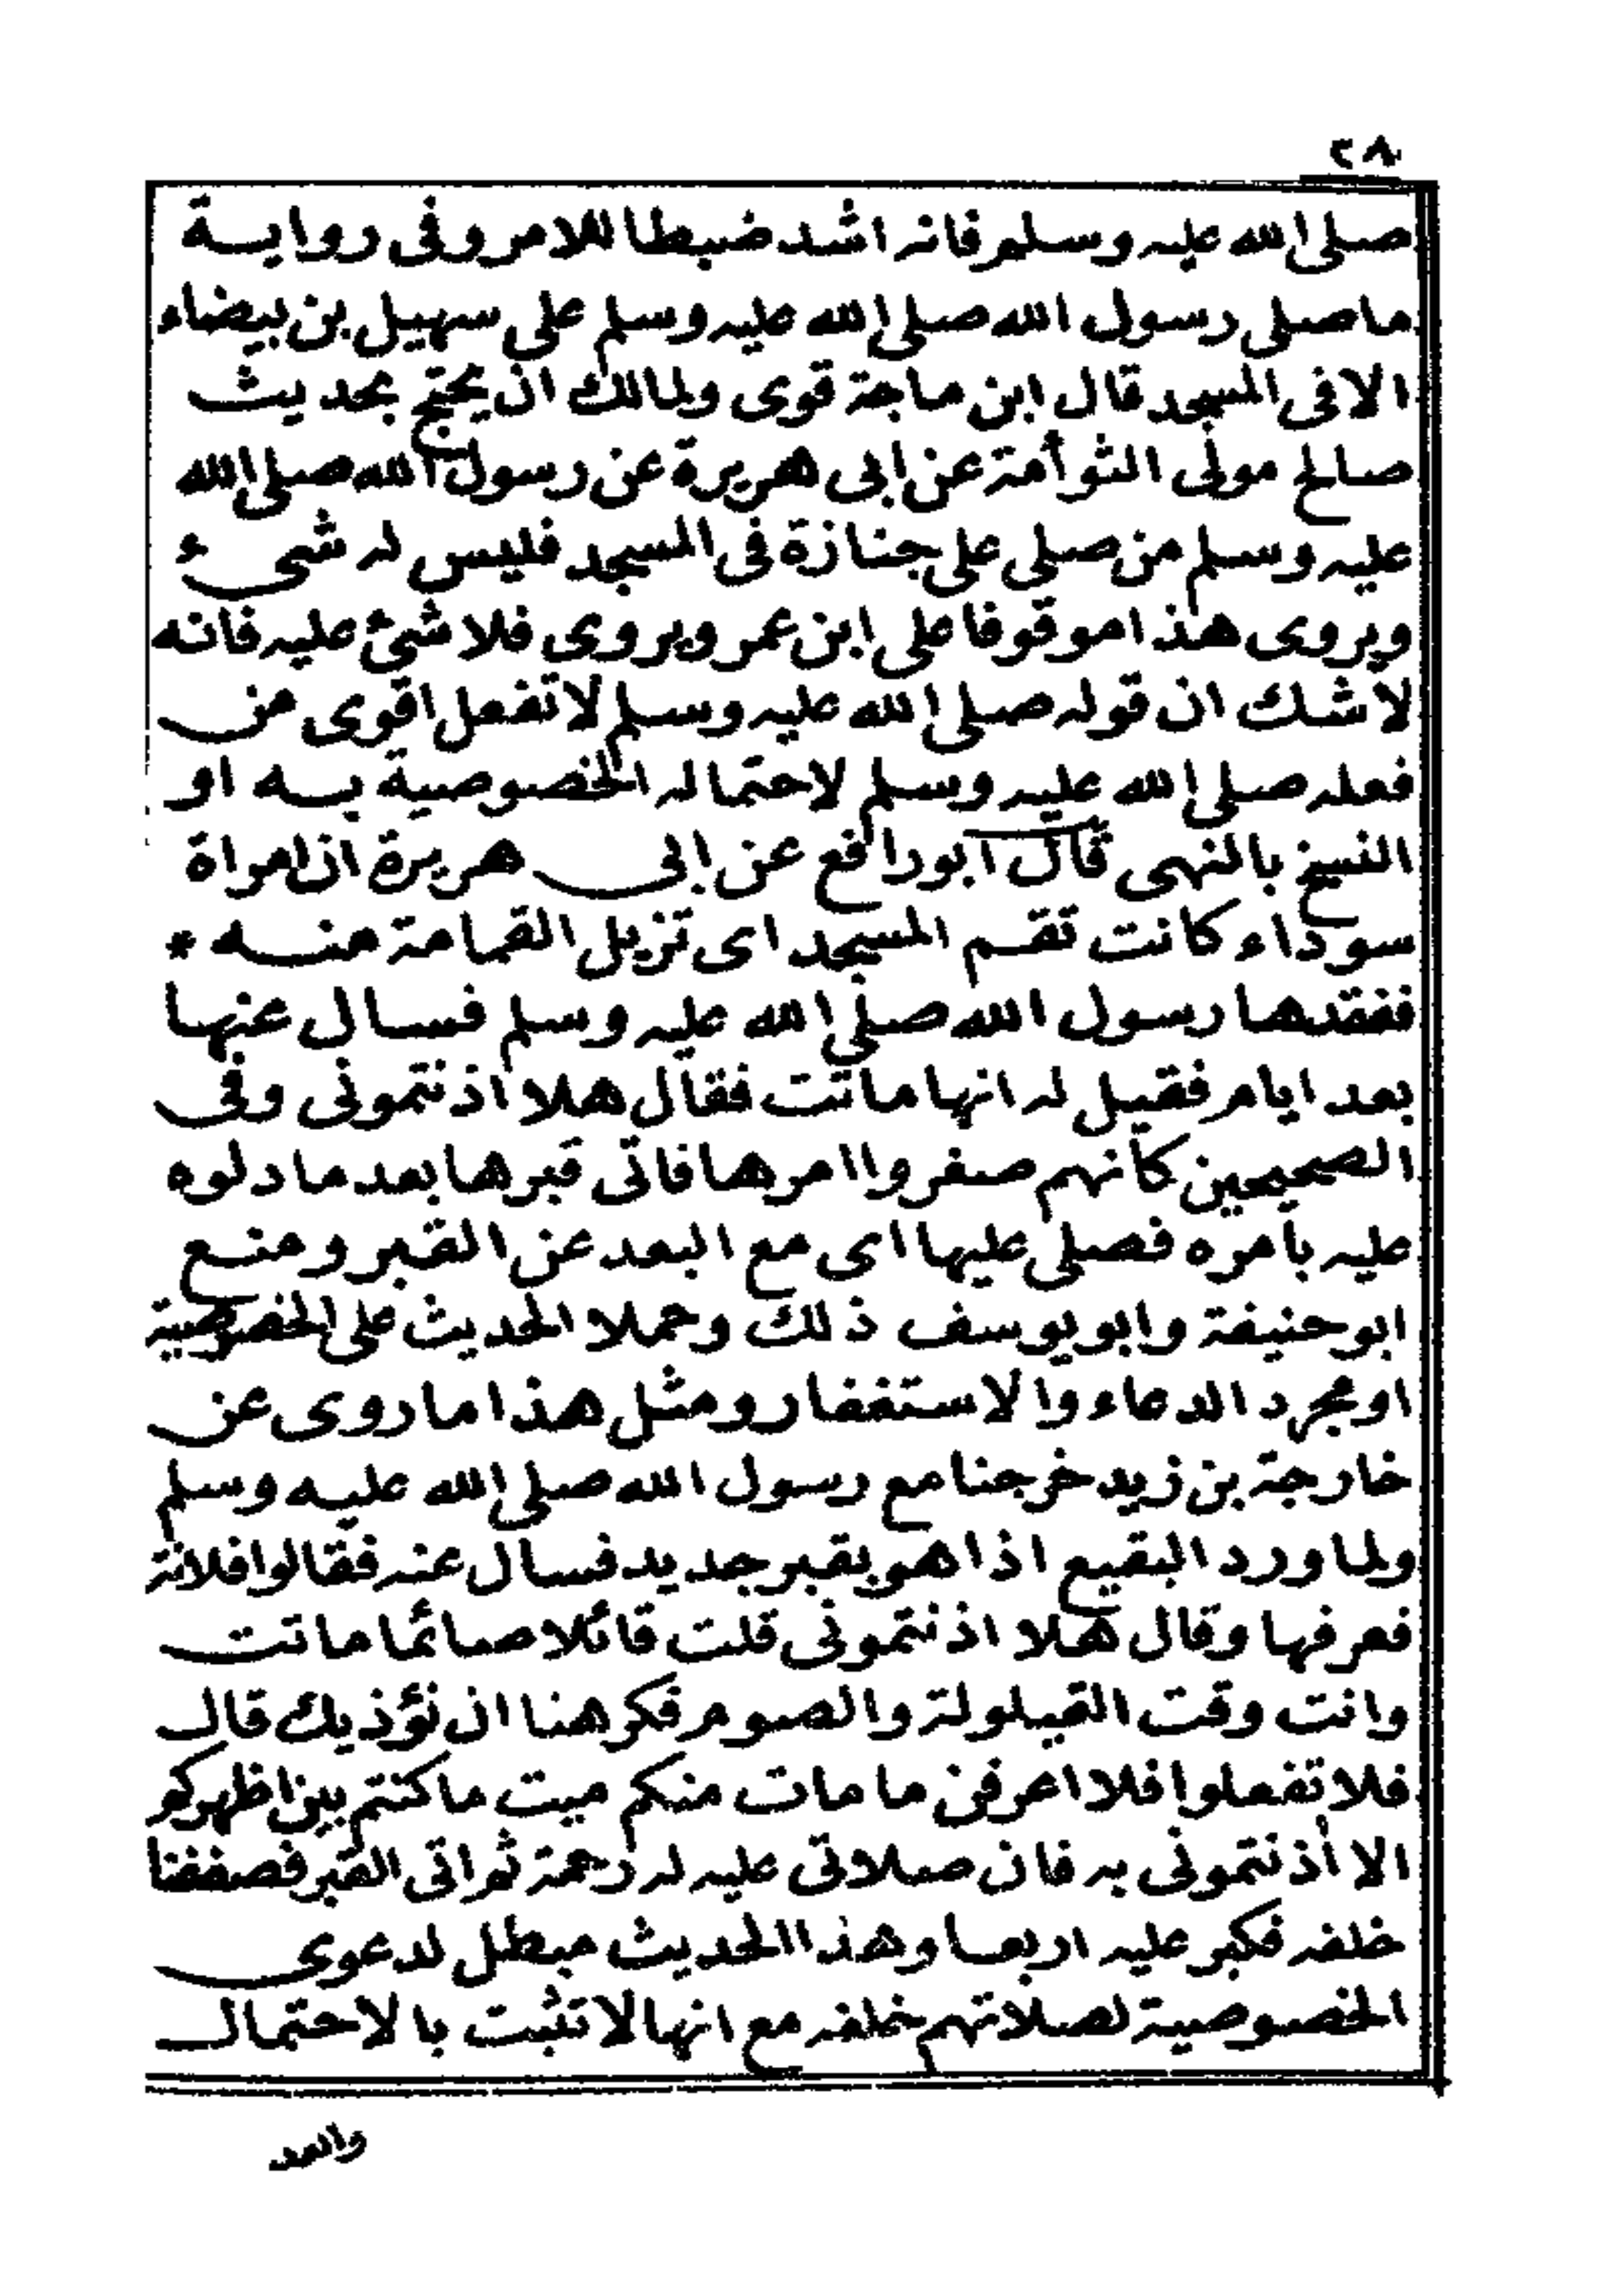 ٢٨
صلى الله عليه وسلم فانه اشد ضبطا للامر وفى رواية
ماصلى رسول الله صلى الله عليه وسلم على سهيل بن بيضاء
الا فى المسجد قال ابن ماجة قوى ولمالك ان يحتج بحديث
صالح مولى التوأمة عن ابى هريرة عن رسول الله صلى الله
عليه وسلم من صلى على جنازة فى المسجد فليس له شىء
ويروى هذا موقوفا على ابن عمر ويروى فلا شئ عليه فانه
لاشك ان قوله صلى الله عليه وسلم لا تفعل اقوى من
فعله صلى الله عليه وسلم لاحتماله الخصوصية به او
النسخ بالنهى قال ابورافع عن ابى هريرة ان امراة
سوداء كانت تقم المسجد اى تزيل القمامة منه *
ففقدها رسول الله صلى الله عليه وسلم فسال عنها
بعد ايام فقيل له انها ماتت فقال هلا اذنتمونى وفى
الصحيحين كانهم صغروا امرها فاتى قبرها بعد ما دلوه
عليه بامره فصلى عليها اى مع البعد عن القبر ومنع
ابو حنيفة وابو يوسف ذلك وحملا الحديث على الخصوصية
او مجرد الدعاء والاستغفار ومثل هذا ما روى عن
خارجة بن زيد خرجنا مع رسول الله صلى الله عليه وسلم
ولما ورد البقيع اذا هو بقبر جديد فسال عنه فقالوا فلانة
فعرفها وقال هلا اذنتمونى قلت قائلا صائما ماتت
وانت وقت القيلولة والصوم فكرهنا ان نؤذيك قال
فلا تفعلوا فلا اعرفن ما مات منكم ميت ماكنتم بين اظهركم
الا أذنتمونى به فان صلاتى عليه له رحمة ثم اتى القبر فصففنا
خلفه فكبر عليه اربعا وهذا الحديث مبطل لدعوى
الخصوصية لصلاتهم خلفه مع انها لا تثبت بالاحتمال